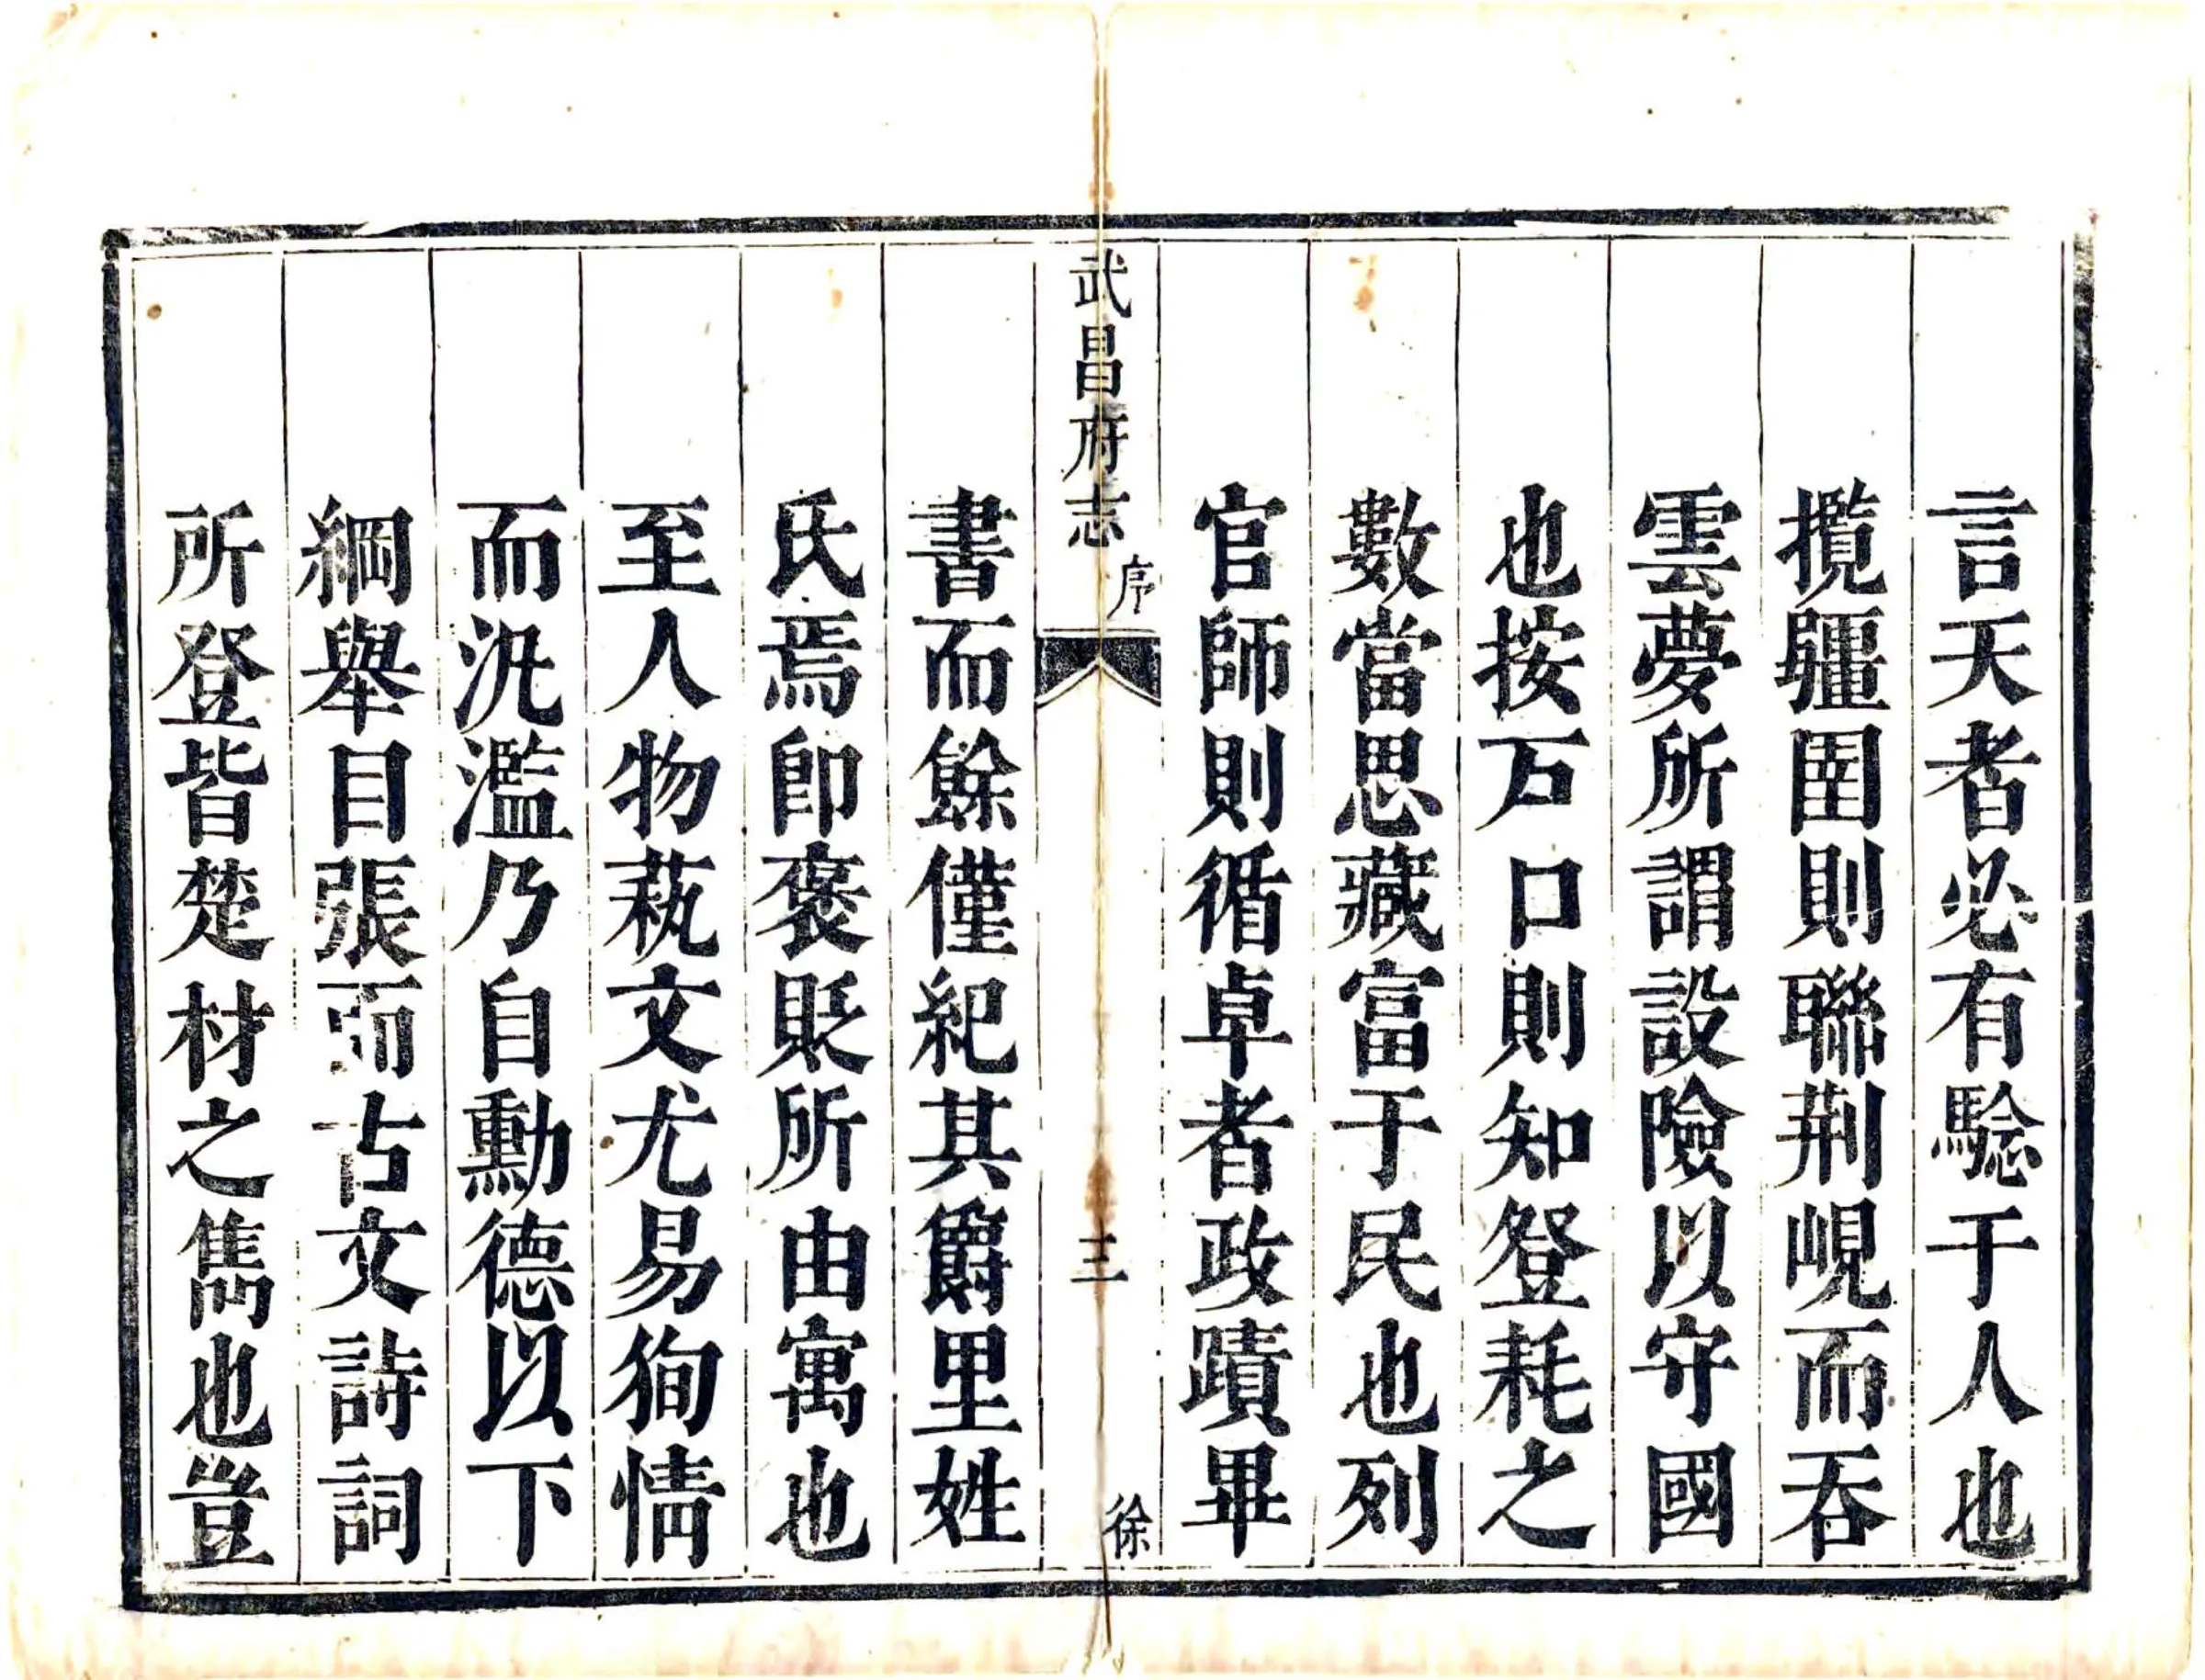 言天者必有騐于人也
攬疆圉則聯荆峴而吞
雲夢所謂設險以守國
也按戸口則知登耗之
數當思藏富于民也列
官師則循卓者政蹟畢
武昌府志 序 三 徐
書而餘僅紀其爵里姓
氏焉卽褒貶所由寓也
至人物藝文尤易狥情
而汎濫乃自勳德以下
綱舉目張而古文詩詞
所登皆楚材之雋也豈